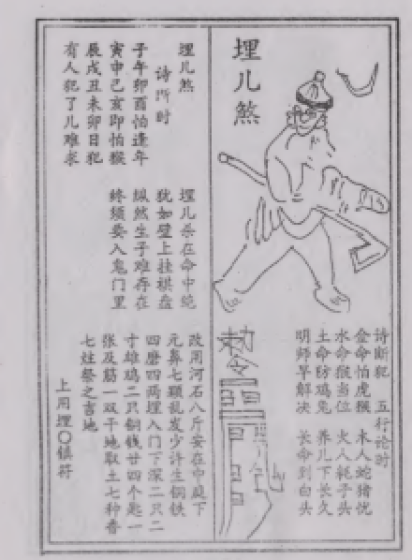 埋儿煞
诗断犯 五行论时
金命怕虎猴 木人蛇猪忧
水命猴当位 火人耗子头
土命防鸡兔 养儿下长久
明师早解决 长命到白头
勅令
埋儿煞
诗所时
子午卯酉怕逢牛
寅申己亥即怕猴
辰戌丑未卯日犯
有人犯了儿难求
埋儿杀在命中绝
犹如壁上挂棋盘
纵然生子难存在
终须要入鬼门里
改用河石八斤安在中庭下
元鼻七颗乱发少许生铜铁
四磨四两埋入门下深二只二
寸雄鸡二只铜钱廿四个匙一
张及筋一双干地取土七种香
七灶祭之吉地
上用埋〇镇符